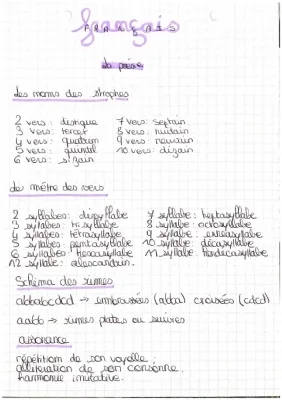 français
FRANÇAIS
la poésie
les noms des strophes
2 vers : distique 7 vers : septain
3 vers : tercet 8 vers : huitain
4 vers : quatrain 9 vers : neuvain
5 vers : quintil 10 vers : dizain
6 vers : sizain
le mètre des vers
2 syllabes : disyllabe 7 syllabe : heptasyllabe
3 sylabes : trisyllabe 8 syllabe : octosyllabe
4 syllabes : tétrasyllabe 9 syllabe : ennéasyllabe
5 syllabes : pentasyllabe 10 syllabe : décasyllabe
6 syllabes : hexasyllabe 11 syllabe : hendécasyllabe
12 syllabe : alexandrin.
Schéma des rimes
abbabcdcd → embrassées (abba) croisées (cdcd)
aabb → rimes plates ou suivies
assonance
répétition de son voyelle ;
allitération de son consonne.
harmonie imitative.